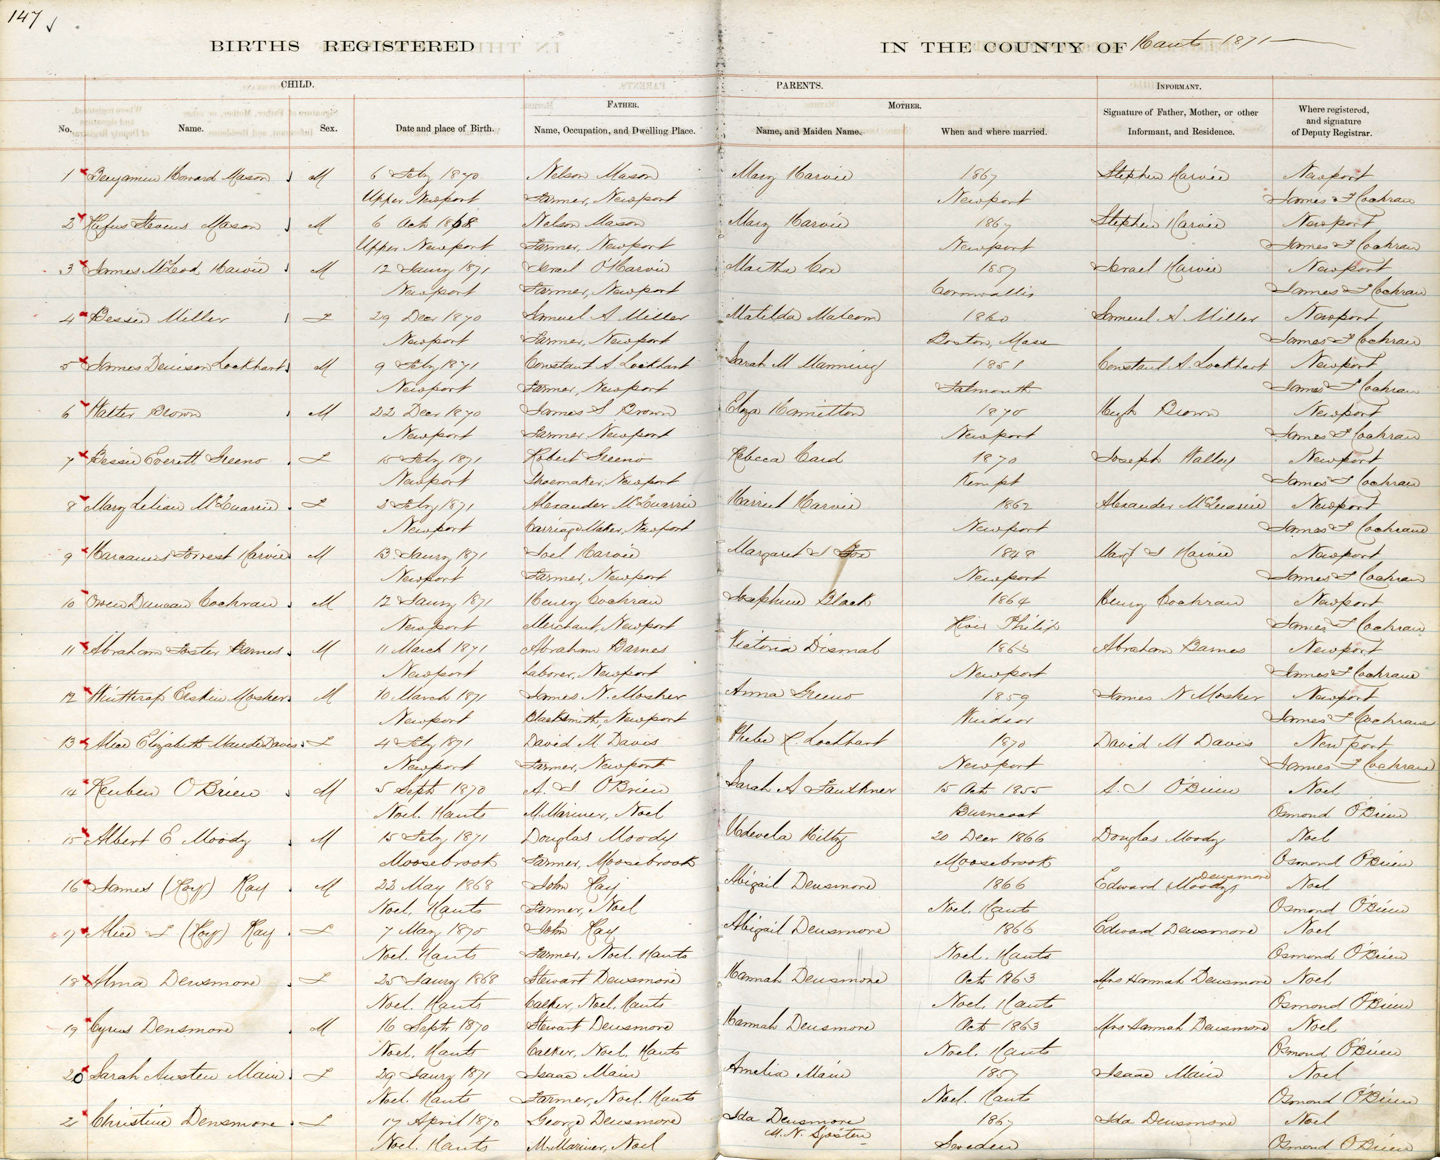 147
BIRTHS REGISTERED IN THE COUNTY OF Hants 1871
CHILD. PARENTS. INFORMANT.
FATHER. MOTHER.
No. Name. Sex. Date and place of Birth. Name, Occupation, and Dwelling Place. Name, and Maiden Name. When and where married. Signature of Father, Mother, or other Informant, and Residence. Where registered, and signature of Deputy Registrar.
1 Benjamin Howard Mason M 6 Feby 1870 Nelson Mason Mary Harvie 1867 Stephen Harvie Newport
Upper Newport Farmer, Newport Newport James F Cochran
2 Rufus Stevens Mason M 6 Oct 1868 Nelson Mason Mary Harvie 1867 Stephen Harvie Newport
Upper Newport Farmer, Newport Newport James F Cochran
3 James McLeod Harvie M 12 Jany 1871 Israel O'Harvie Martha Cox 1857 Israel Harvie Newport
Newport Farmer, Newport Cornwallis James F Cochran
4 Bessie Miller F 29 Decr 1870 Samuel A Miller Matilda Malcom 1860 Samuel A Miller Newport
Newport Farmer, Newport Boston, Mass James F Cochran
5 James Denison Lockhart M 9 Feby 1871 Constant A Lockhart Sarah M Manning 1851 Constant A. Lockhart Newport
Newport Farmer, Newport Falmouth James F Cochran
6 Walter Brown M 22 Decr 1870 James S Brown Eliza Hamilton 1870 Hugh Brown Newport
Newport Farmer, Newport Newport James F Cochran
7 Bessie Everett Greeno F 15 Feby 1871 Robert Greeno Rebecca Card 1870 Joseph Walley Newport
Newport Shoemaker, Newport Kempt James F Cochran
8 Mary Lelian McQuarrie F 3 Feby 1871 Alexander McQuarrie Harriet Harvie 1862 Alexander McQuarrie Newport
Newport Carriage Maker, Newport Newport James F Cochrane
9 Forrest Harvie M 13 Jany 1871 Joel Harvie Margaret S Fox 1848 Margt S Harvie Newport
Newport Farmer, Newport Newport James F Cochran
10 Owen Duncan Cochran M 12 Jany 1871 Henry Cochran Josephine Black 1864 Henry Cochran Newport
Newport Merchant, Newport River Philip James F Cochran
11 Abraham Foster Barnes M 11 March 1871 Abraham Barnes Victoria Dismal 1863 Abraham Barnes Newport
Newport Laborer, Newport Newport James F Cochrane
12 Winthrop Erskin Mosher M 10 March 1871 James N. Mosher Anna Greeno 1859 James N Mosher Newport
Newport Blacksmith, Newport Windsor James F Cochrane
13 Alice Elizabeth Maude Davis F 4 Feby 1871 David M Davis Phebe C Lockhart 1870 David M Davis Newport
Newport Farmer, Newport Newport James F Cochran
14 Reuben O'Brien M 5 Sept 1870 A. S O'Brien Sarah A Faulkner 15 Oct 1855 A. S O'Brien Noel
Noel. Hants M. Mariner, Noel Burncoat Osmond O'Brien
15 Albert E Moody M 15 Feby 1871 Douglas Moody Udevela Hiltz 20 Decr 1866 Douglas Moody Noel
Moosebrook Farmer, Moosebrook Moosebrook Osmond O'Brien
16 James (Hoy) Kay M 22 May 1868 John Kay Abigail Densmore 1866 Edward Moody Densmore Noel
Noel. Hants Farmer, Noel Noel. Hants Osmond O'Brien
17 Alice S (Hoy) Kay F 7 May 1870 John Kay Abigail Densmore 1866 Edward Densmore Noel
Noel. Hants Farmer, Noel. Hants Noel. Hants Osmond O'Brien
18 Alma Densmore F 25 Jany 1868 Stewart Densmore Hannah Densmore Oct 1863 Mrs Hannah Densmore Noel
Noel. Hants Calker, Noel. Hants Noel. Hants Osmond O'Brien
19 Cyrus Densmore M 16 Sept 1870 Stewart Densmore Hannah Densmore Oct 1863 Mrs Hannah Densmore Noel
Noel. Hants Calker, Noel. Hants Noel. Hants Osmond O'Brien
20 Sarah Austen Main F 29 Jany 1871 Isaac Main Amelia Main 1857 Isaac Main Noel
Noel. Hants Farmer, Noel. Hants Noel. Hants Osmond O'Brien
21 Christine Densmore F 17 April 1870 George Densmore Ida Densmore 1867 Ida Densmore Noel
M. N. Sjosten
Noel. Hants M. Mariner, Noel Sweden Osmond O'Brien